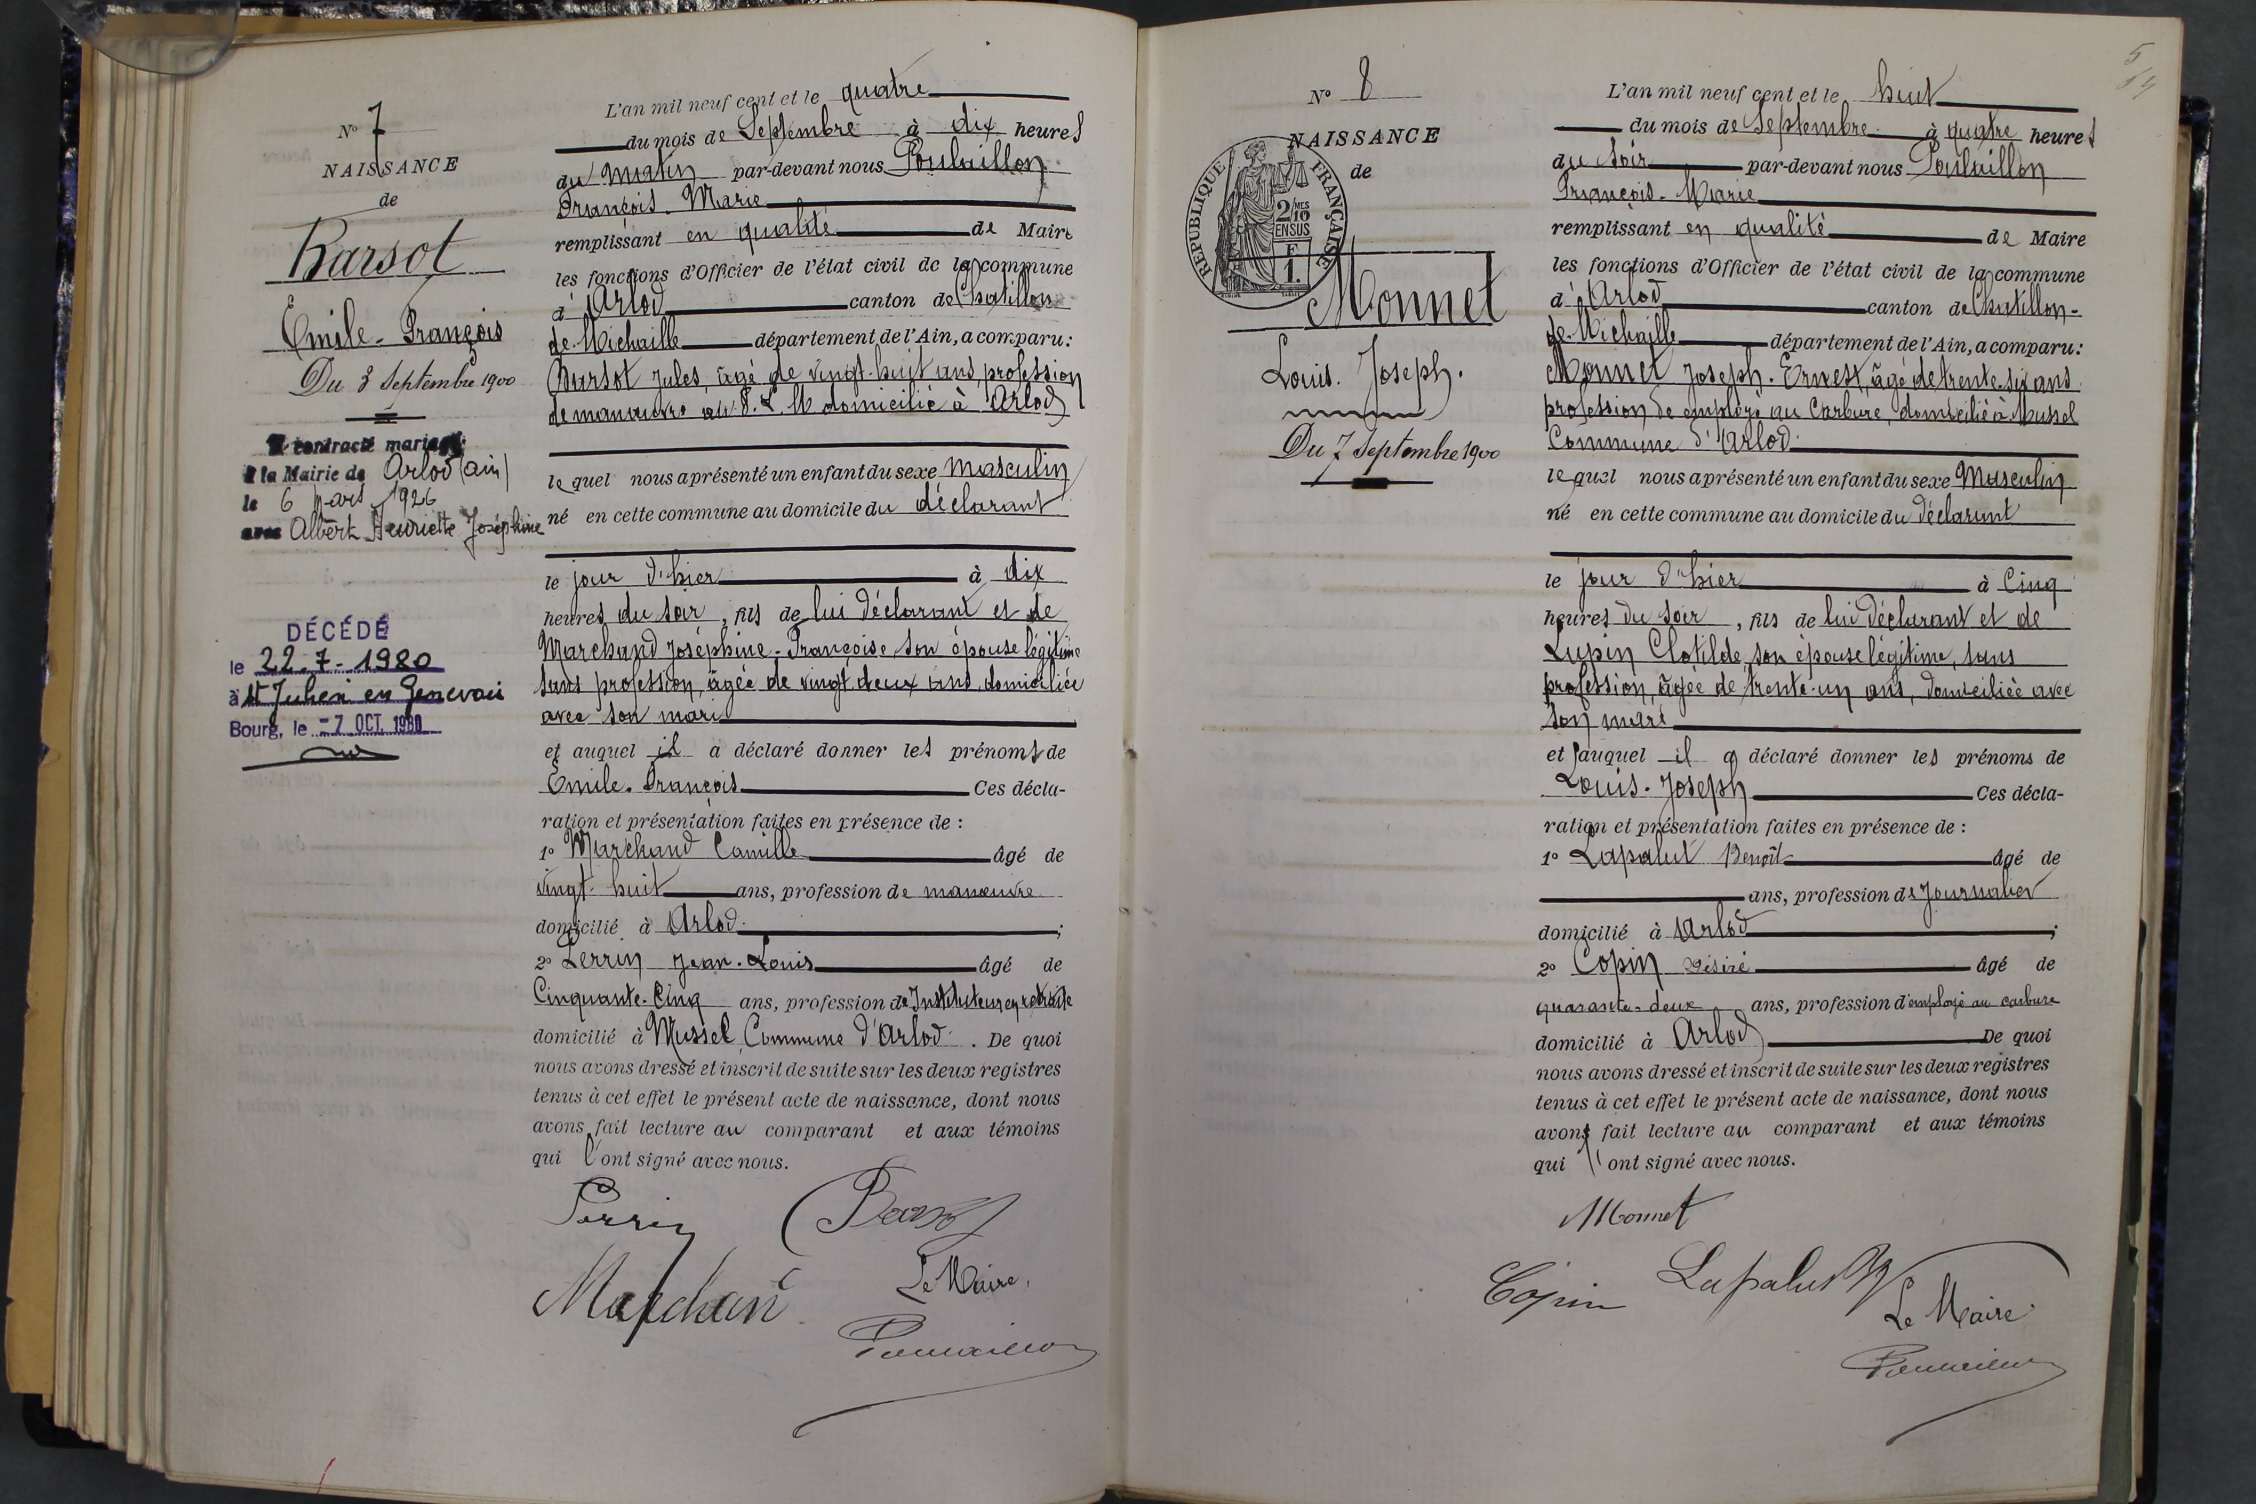 N° 7
NAISSANCE
de
Barsot
Emile-François
Du 3 Septembre 1900
A contracté mariage
à la Mairie de Arlod (ain)
le 6 Mars 1926
avec Albert Henriette Joséphine
DÉCÉDÉ
le 22.7-1980
à St Julien en Genevois
Bourg, le -7 OCT. 1980
L'an mil neuf cent et le quatre
du mois de Septembre à dix heures
du matin par-devant nous Poulaillon
François-Marie
remplissant en qualité de Maire
les fonctions d'Officier de l'état civil de la commune
d'Arlod canton de Chatillon
de-Michaille département de l'Ain, a comparu:
Barsot Jules, âgé de vingt-huit ans, profession
de manœuvre au P. L. M domicilié à Arlod
le quel nous a présenté un enfant du sexe Masculin
né en cette commune au domicile du déclarant
le jour d'hier à dix
heures du soir, fils de lui déclarant et de
Marchand Joséphine-Françoise, son épouse légitime
sans profession, âgée de vingt deux ans, domiciliée
avec son mari
et auquel il a déclaré donner les prénoms de
Emile-François Ces décla-
ration et présentation faites en présence de :
1° Marchand Camille âgé de
vingt-huit ans, profession de manœuvre
domicilié à Arlod ;
2° Perrin Jean-Louis âgé de
Cinquante-Cinq ans, profession de Instituteur en retraite
domicilié à Mussel Commune d'Arlod. De quoi
nous avons dressé et inscrit de suite sur les deux registres
tenus à cet effet le présent acte de naissance, dont nous
avons fait lecture au comparant et aux témoins
qui l'ont signé avec nous.
Perrin Barsot
Marchand
Le Maire,
Poulaillon
5
N° 8
NAISSANCE
de
RÉPUBLIQUE FRANÇAISE
2/10 MES
EN SUS
F
1.
Monnet
Louis-Joseph.
Du 7 Septembre 1900
L'an mil neuf cent et le huit
du mois de Septembre à quatre heures
du Soir par-devant nous Poulaillon
François-Marie
remplissant en qualité de Maire
les fonctions d'Officier de l'état civil de la commune
d'Arlod canton de Chatillon-
de-Michaille département de l'Ain, a comparu:
Monnet Joseph-Ernest, âgé de trente-six ans
profession de employé au Carbure, domicilié à Mussel
Commune d'Arlod.
le quel nous a présenté un enfant du sexe Masculin
né en cette commune au domicile du déclarant
le jour d'hier à Cinq
heures du soir, fils de lui déclarant et de
Lupin Clotilde, son épouse légitime, sans
profession, âgée de trente-un ans, domiciliée avec
son mari
et auquel il a déclaré donner les prénoms de
Louis-Joseph Ces décla-
ration et présentation faites en présence de :
1° Lapalut Benoît âgé de
ans, profession de Journalier
domicilié à Arlod ;
2° Copin Désiré âgé de
quarante-deux ans, profession d'employé au carbure
domicilié à Arlod De quoi
nous avons dressé et inscrit de suite sur les deux registres
tenus à cet effet le présent acte de naissance, dont nous
avons fait lecture au comparant et aux témoins
qui l'ont signé avec nous.
Monnet
Copin Lapalut
Le Maire
Poulaillon